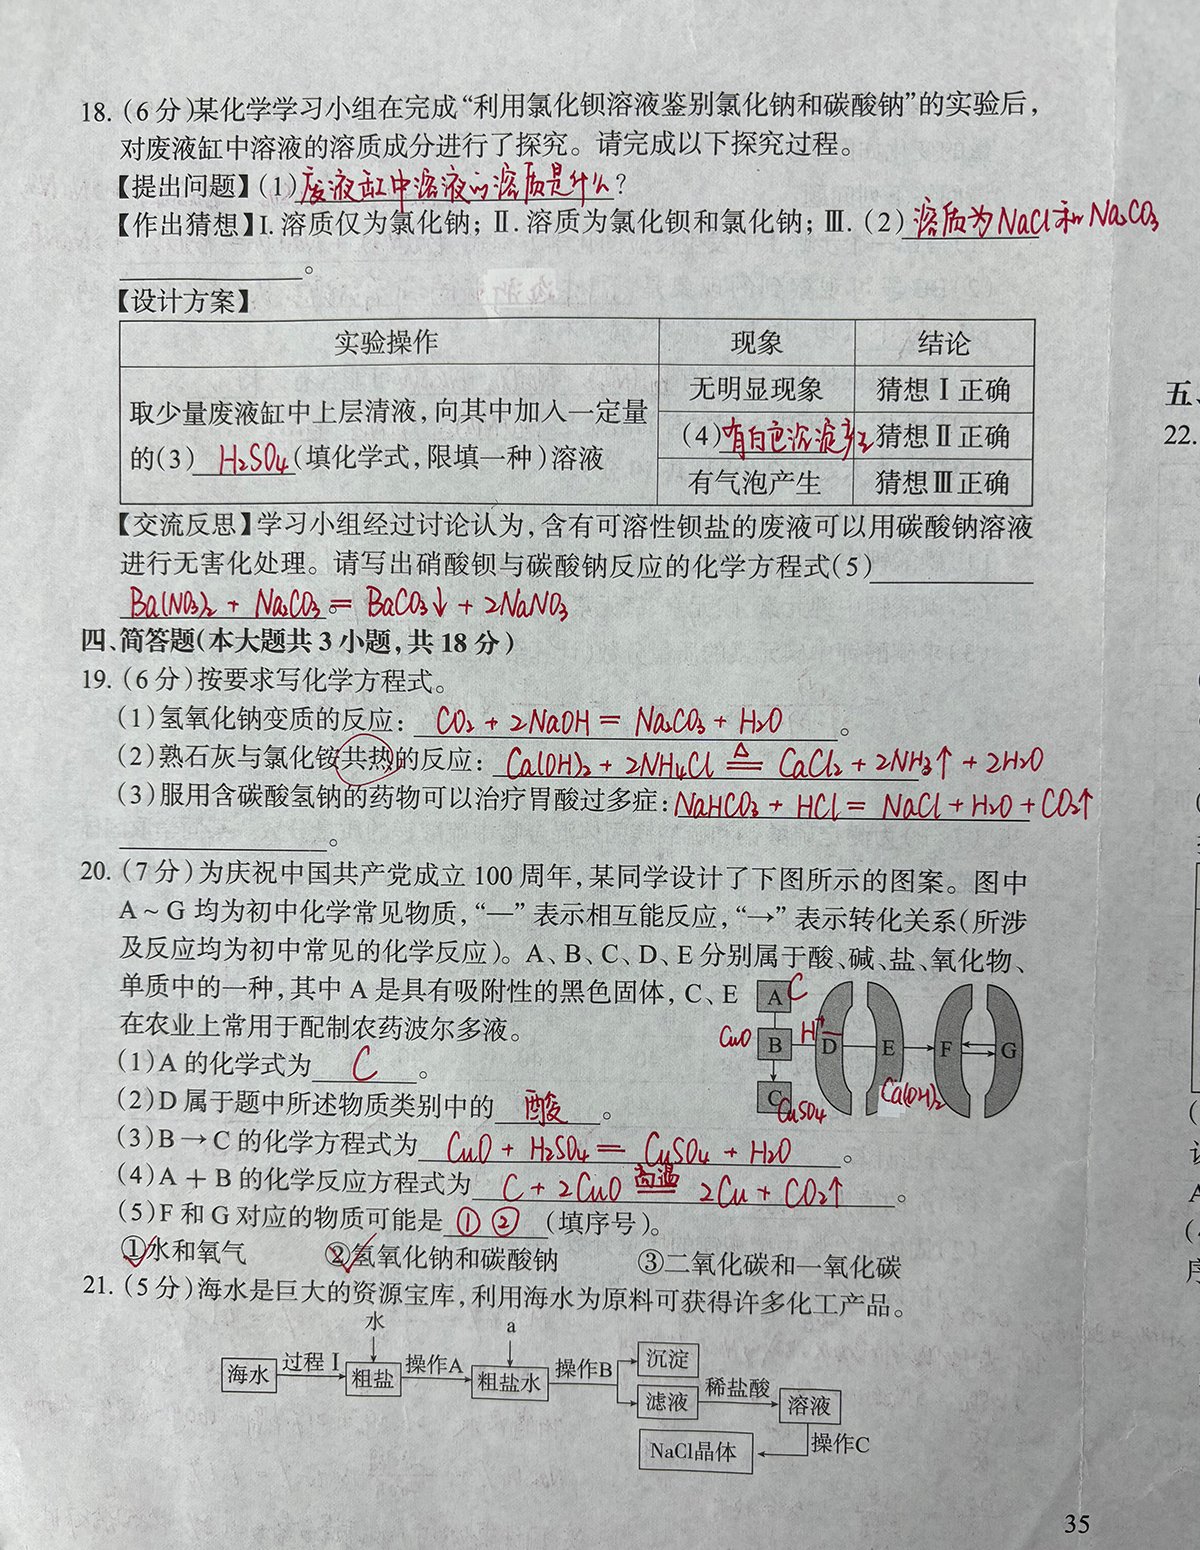 18.(6分)某化学学习小组在完成“利用氯化钡溶液鉴别氯化钠和碳酸钠”的实验后,
对废液缸中溶液的溶质成分进行了探究。请完成以下探究过程。
【提出问题】(1)废液缸中溶液的溶质是什么?
【作出猜想】Ⅰ.溶质仅为氯化钠;Ⅱ.溶质为氯化钡和氯化钠;Ⅲ.(2)溶质为NaCl和Na₂CO₃
。
【设计方案】
实验操作 现象 结论
取少量废液缸中上层清液,向其中加入一定量的(3)H₂SO₄(填化学式,限填一种)溶液
无明显现象 猜想Ⅰ正确
(4)有白色沉淀产生 猜想Ⅱ正确
有气泡产生 猜想Ⅲ正确
【交流反思】学习小组经过讨论认为,含有可溶性钡盐的废液可以用碳酸钠溶液
进行无害化处理。请写出硝酸钡与碳酸钠反应的化学方程式(5)
Ba(NO₃)₂ + Na₂CO₃ = BaCO₃↓ + 2NaNO₃。
四、简答题(本大题共3小题,共18分)
19.(6分)按要求写化学方程式。
(1)氢氧化钠变质的反应: CO₂ + 2NaOH = Na₂CO₃ + H₂O。
(2)熟石灰与氯化铵共热的反应: Ca(OH)₂ + 2NH₄Cl ≜ CaCl₂ + 2NH₃↑ + 2H₂O
(3)服用含碳酸氢钠的药物可以治疗胃酸过多症: NaHCO₃ + HCl = NaCl + H₂O + CO₂↑
。
20.(7分)为庆祝中国共产党成立100周年,某同学设计了下图所示的图案。图中
A~G均为初中化学常见物质,“—”表示相互能反应,“→”表示转化关系(所涉
及反应均为初中常见的化学反应)。A、B、C、D、E分别属于酸、碱、盐、氧化物、
单质中的一种,其中A是具有吸附性的黑色固体,C、E
在农业上常用于配制农药波尔多液。
A C
CuO B H⁺ D E F G
C CuSO₄ Ca(OH)₂
(1)A的化学式为 C 。
(2)D属于题中所述物质类别中的 酸 。
(3)B→C的化学方程式为 CuO + H₂SO₄ = CuSO₄ + H₂O 。
(4)A+B的化学反应方程式为 C + 2CuO 高温 = 2Cu + CO₂↑ 。
(5)F和G对应的物质可能是 ①② (填序号)。
①水和氧气 ②氢氧化钠和碳酸钠 ③二氧化碳和一氧化碳
21.(5分)海水是巨大的资源宝库,利用海水为原料可获得许多化工产品。
水 a
海水 过程Ⅰ 粗盐 操作A 粗盐水 操作B 沉淀
滤液 稀盐酸 溶液
NaCl晶体 操作C
35
五、
22.